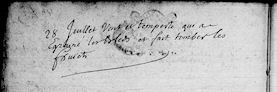 28 Juillet Vent et tempeste qui a
Egrainé les bleds et fait tomber les
fruicts